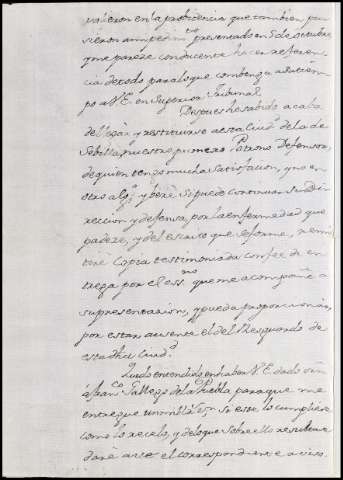 valieron en la providencia que tambien pu
sieron a mi pedim.to presentado en 5 de octubre
me pareze conducente hacer referen
cia de todo para lo que combenga a su tiem
po a V.E. en Superior Tribunal
Despues he sabido acaba
de llegar y restituirse a esta Ciud.d de la de
Sebilla nuestro primero Patrono Defensor,
de quien tengo mucha satisfacion, y no en
otro alg.o y veré si puede continuar su di
reccion y defensa por la enfermedad que
padeze, y del escrito que se forme, remi
tiré Copia testimoniada con fee de en
trega por el ess.no que me acompañe a
su presentazion, y pueda proporcionar,
por estar ausente el del Resguardo de
esta dha Ciud.d
Quedo entendido en haber V.E. dado orn
a Fran.co Gallego de la Puebla para que me
entregue un mil r.s si este lo cumpliere
como lo recelo, y de lo que sobre ello resultare
daré a V.E. el correspondiente aviso.